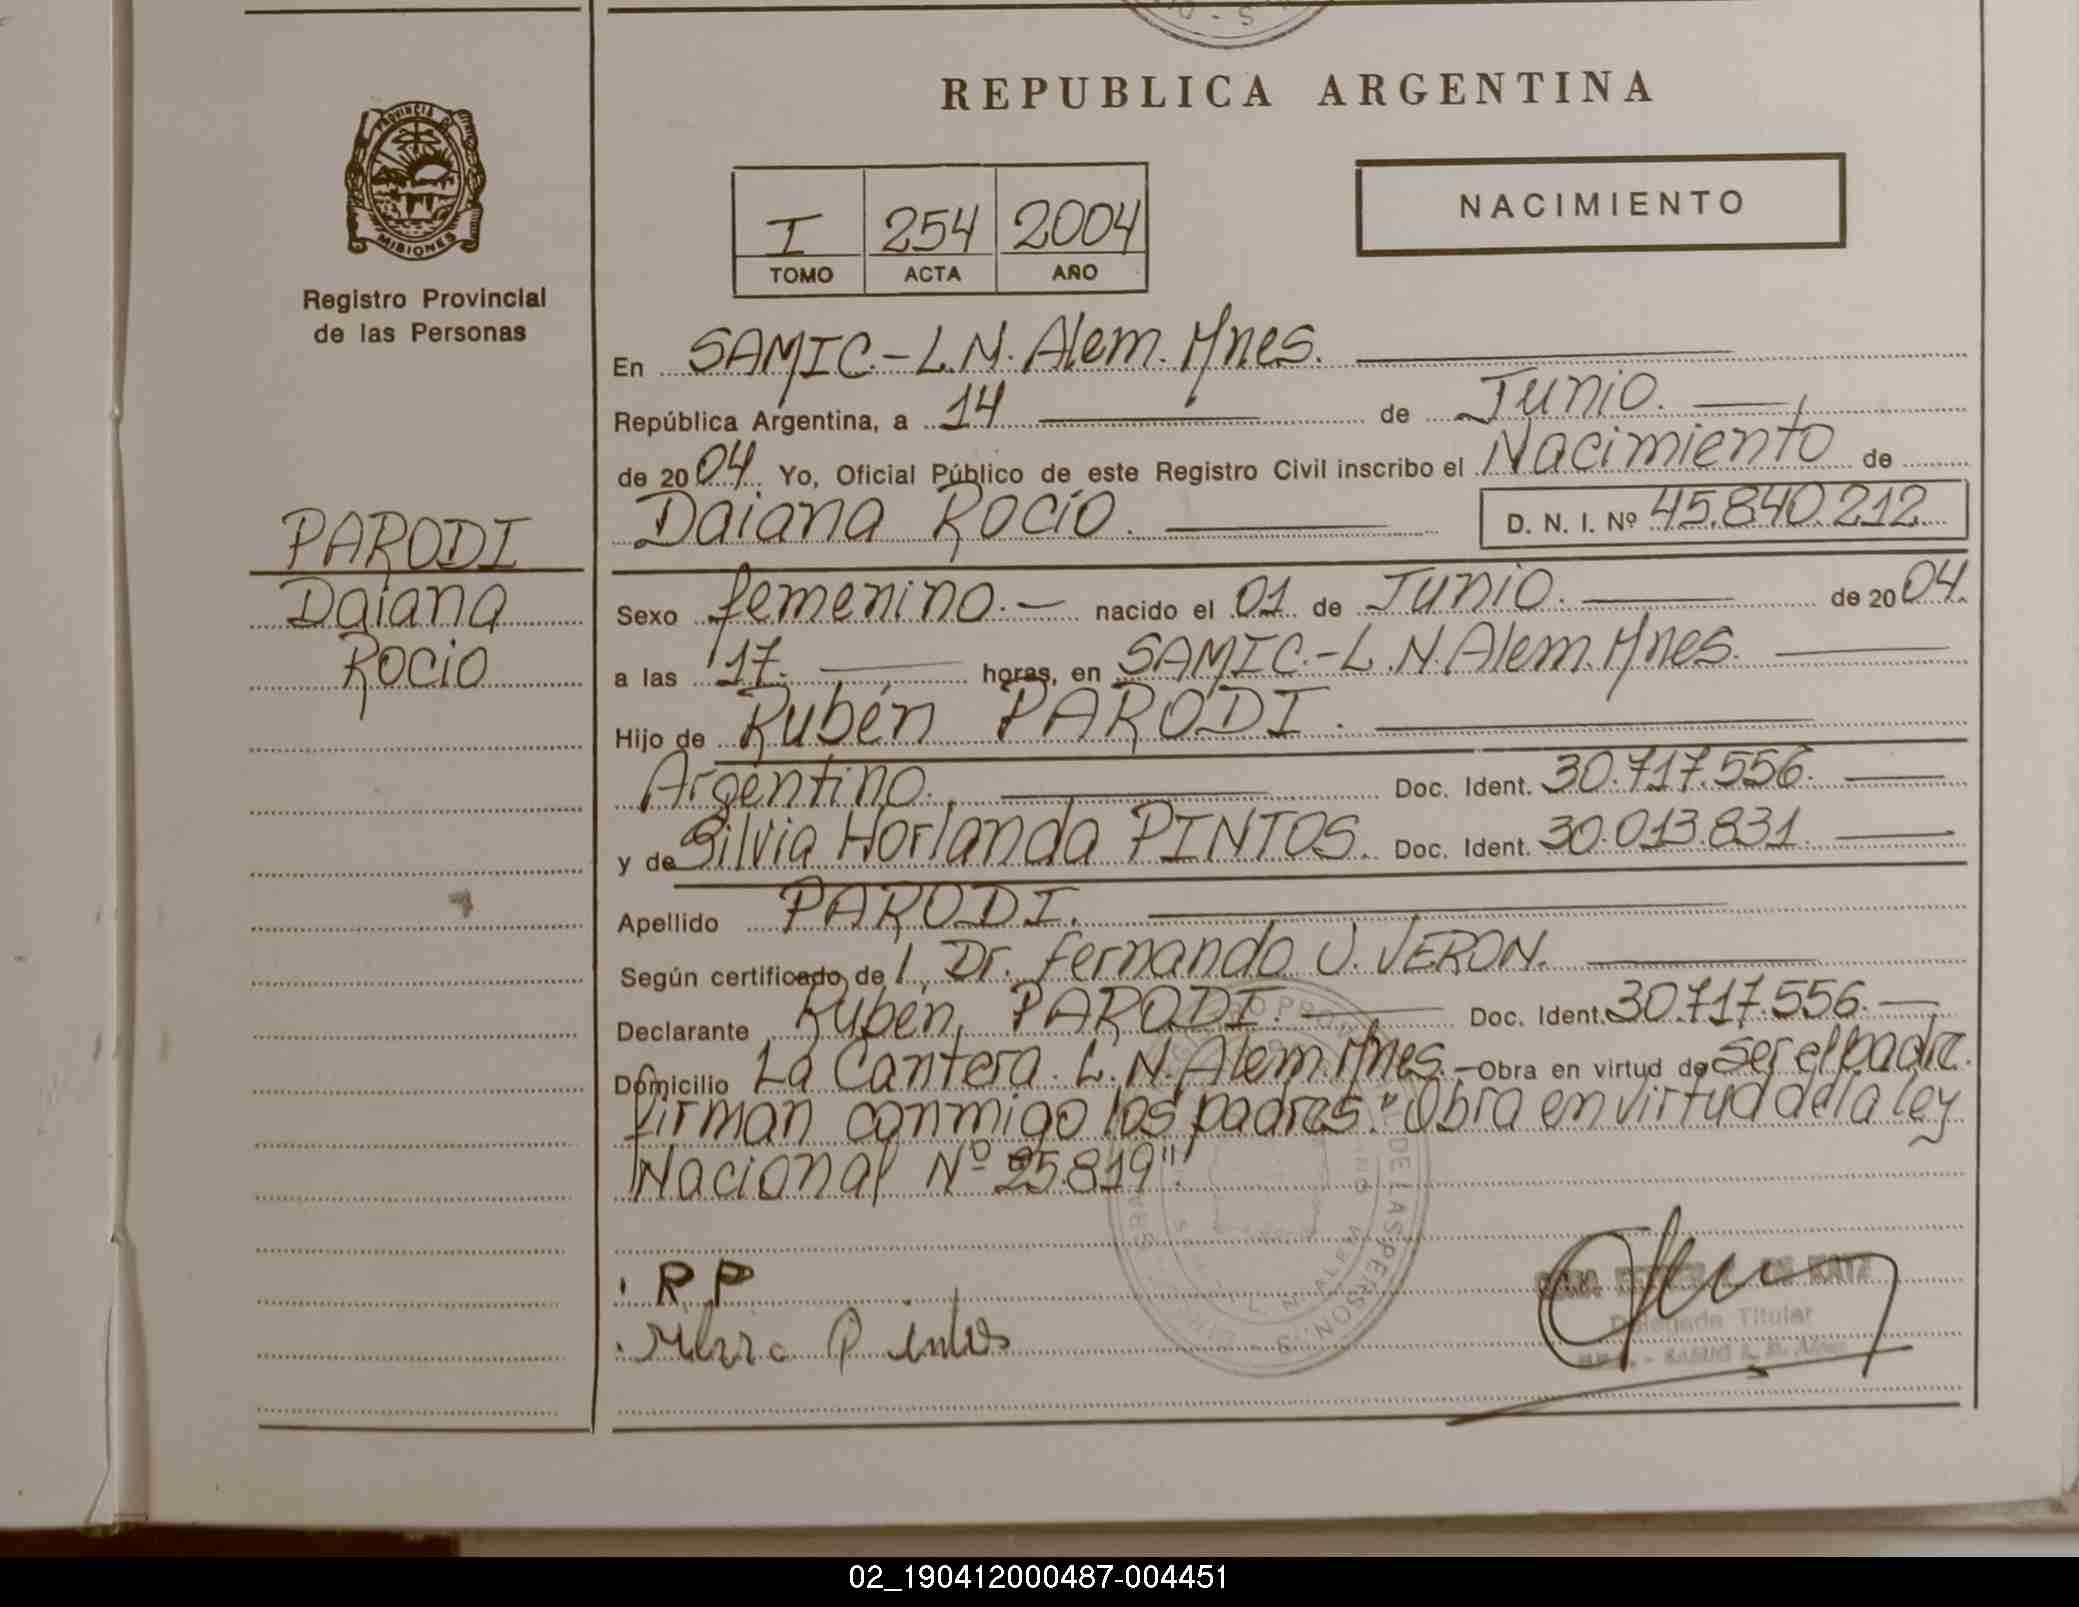 REPUBLICA ARGENTINA
PROVINCIA DE
MISIONES
Registro Provincial
de las Personas
I 254 2004
TOMO ACTA AÑO
NACIMIENTO
En SAMIC.-L.N. Alem. Mnes.
República Argentina, a 14 de Junio.
de 2004. Yo, Oficial Público de este Registro Civil inscribo el Nacimiento de
Daiana Rocío. D. N. I. Nº 45.840.212
PARODI
Daiana
Rocío
Sexo femenino.- nacido el 01 de Junio. de 2004.
a las 17. horas, en SAMIC.-L.N. Alem. Mnes.
Hijo de Rubén PARODI.
Argentino. Doc. Ident. 30.717.556.
y de Silvia Horlanda PINTOS. Doc. Ident. 30.013.831.
Apellido PARODI.
Según certificado de l, Dr. Fernando J. VERON.
Declarante Rubén, PARODI. Doc. Ident. 30.717.556.
Domicilio La Cantera. L.N. Alem. Mnes. Obra en virtud de ser el padre.
firman conmigo los padres. "Obra en virtud de la ley
Nacional Nº 25.819".
DE LAS PERSONAS
R P
Pintos
Delegada Titular
02_190412000487-004451